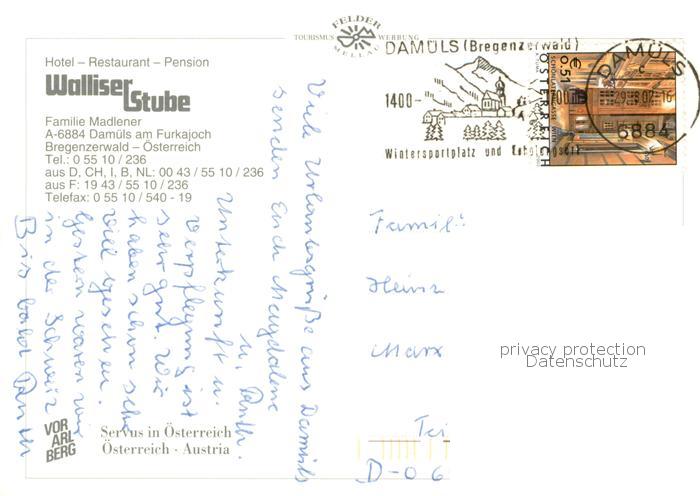 FELDER
TOURISMUS WERBUNG
MELLAU
Hotel – Restaurant – Pension
Walliser
Stube
Familie Madlener
A-6884 Damüls am Furkajoch
Bregenzerwald – Österreich
Tel.: 0 55 10 / 236
aus D, CH, I, B, NL: 00 43 / 55 10 / 236
aus F: 19 43 / 55 10 / 236
Telefax: 0 55 10 / 540 - 19
DAMÜLS (Bregenzerwald)
1400-
Wintersportplatz und Erholungsort
€ 0.51
ÖSTERREICH
DAMÜLS
6884
Viele Urlaubsgrüße aus Damüls
senden Euch Magdalene
u.
Unterkunft u.
Verpflegung ist
sehr gut. Wir
haben schon sehr
viel gesehen.
Gestern waren wir
in der Schweiz
Bis bald
Famil
Heinz
Marx
Tei
D-06
privacy protection
Datenschutz
VOR
ARL
BERG
Servus in Österreich
Österreich · Austria